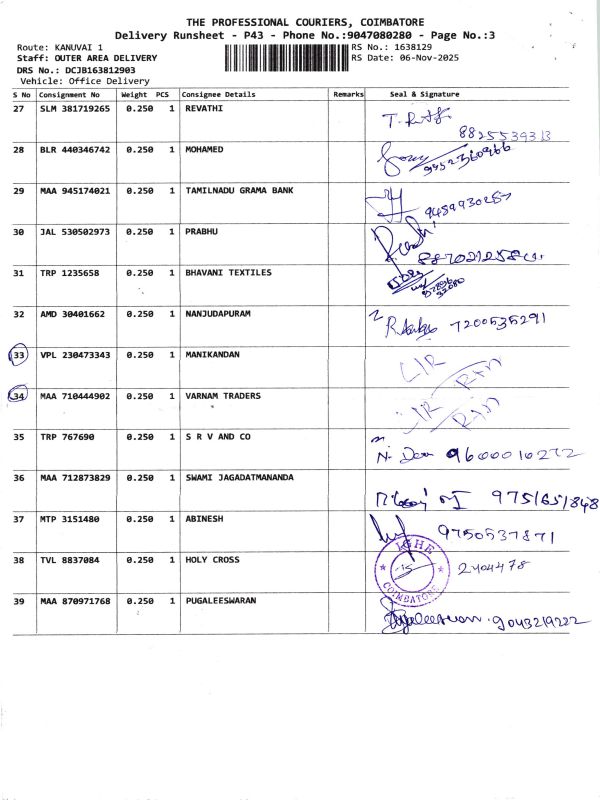 THE PROFESSIONAL COURIERS, COIMBATORE
Delivery Runsheet - P43 - Phone No.:9047080280 - Page No.:3
Route: KANUVAI 1
RS No.: 1638129
Staff: OUTER AREA DELIVERY
RS Date: 06-Nov-2025
DRS No.: DCJB163812903
Vehicle: Office Delivery
S No Consignment No Weight PCS Consignee Details Remarks Seal & Signature
27 SLM 381719265 0.250 1 REVATHI
8825539313
28 BLR 440346742 0.250 1 MOHAMED
9952360966
29 MAA 945174021 0.250 1 TAMILNADU GRAMA BANK
30 JAL 530502973 0.250 1 PRABHU
31 TRP 1235658 0.250 1 BHAVANI TEXTILES
32 AMD 30401662 0.250 1 NANJUDAPURAM
7200535291
33 VPL 230473343 0.250 1 MANIKANDAN
34 MAA 710444902 0.250 1 VARNAM TRADERS
35 TRP 767690 0.250 1 S R V AND CO
9600010272
36 MAA 712873829 0.250 1 SWAMI JAGADATMANANDA
975/65/848
37 MTP 3151480 0.250 1 ABINESH
9750537871
38 TVL 8837084 0.250 1 HOLY CROSS
IGHE
COIMBATORE
2404478
39 MAA 870971768 0.250 1 PUGALEESWARAN
Pugaleeswaran. 9043219222